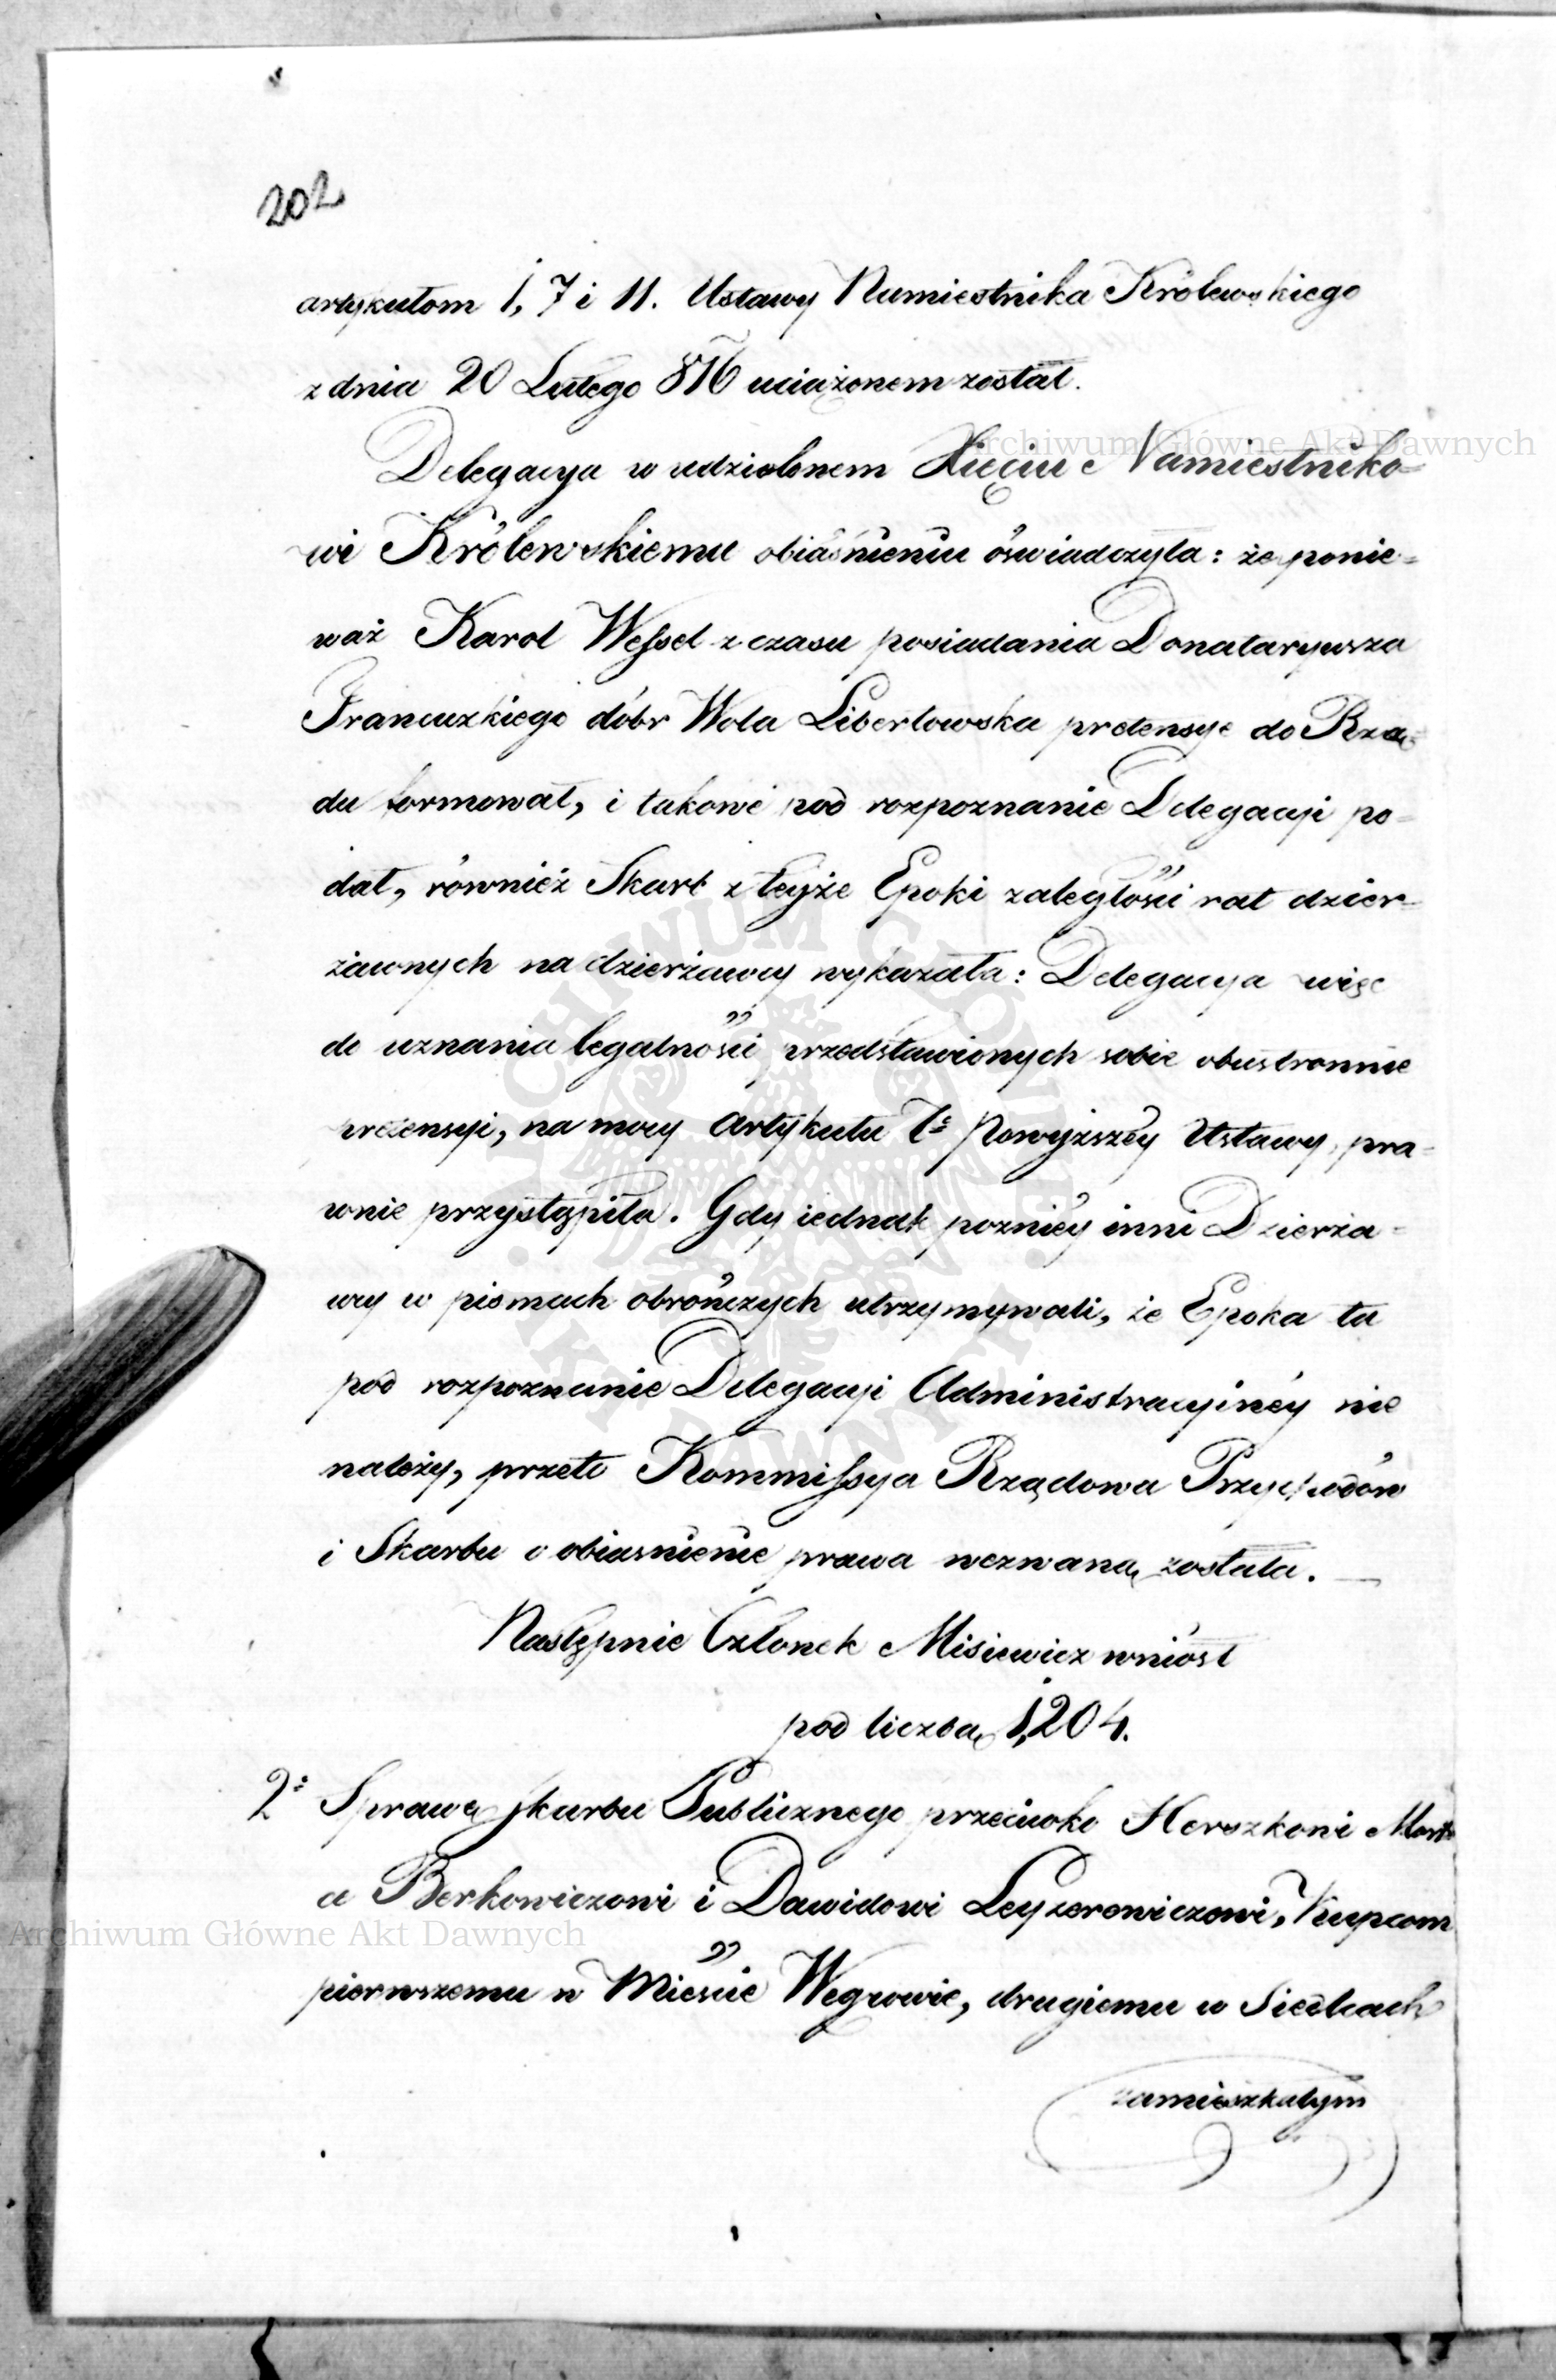 202
artykułom 1, 7 i 11. Ustawy Namiestnika Królewskiego
z dnia 20 Lutego 816 uciążonem został.
Delegacya w udzielonem Xięciu Namiestniko=
wi Królewskiemu obiaśnieniu oświadczyła: że ponie=
waż Karol Wessel z czasu posiadania Donataryusza
Francuzkiego dóbr Wola Libertowska pretensye do Rzą=
du formował, i takowe pod rozpoznanie Delegacyi po=
dał, również Skarb z teyże Epoki zaległości rat dzier=
żawnych na dzierżawcy wykazała: Delegacya więc
do uznania legalności przedstawionych sobie obustronnie
pretensyi, na mocy Artykułu 7º Powyższey Ustawy, pra=
wnie przystąpiła. Gdy iednak pozniéy inni Dzierża=
wcy w pismach obrończych utrzymywali, że Epoka ta
pod rozpoznanie Delegacyi Administracyinéy nie
należy, przeto Kommissya Rządowa Przychodów
i Skarbu o obiasnienie prawa wezwaną została. —
Następnie Członek Misiewicz wniósł
pod liczbą 1,204.
2º Sprawę Skarbu Publicznego przeciwko Herszkowi
Berkowiczowi i Dawidowi Leyzerowiczowi, Kupcom
pierwszemu w Mieście Węgrowie, drugiemu w Siedlcach
zamieszkałym
Archiwum Główne Akt Dawnych
Archiwum Główne Akt Dawnych
ARCHIWUM GŁÓWNE AKT DAWNYCH